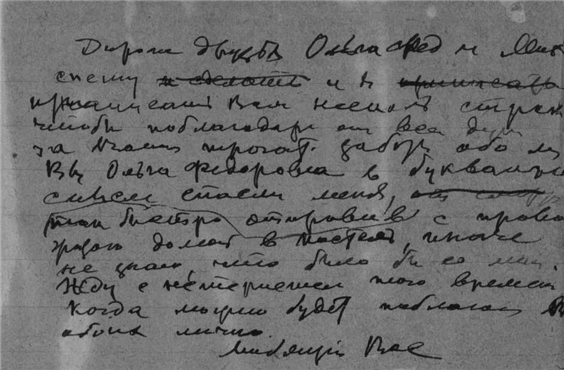 Дороги друзья Ольга Фед и Мих
спешу и в
написать Вам несколь строк
чтобы поблагодари от всей души
за Вашу трогат. заботу обо м
Вы Ольга Федоровна в буквальн
смысле спасли меня,
так быстро отправив с прово
домой в постель, иначе
не знаю, что было бы со мн.
Жду с нетерпением того времени
когда можно будет поблагод В
обоих лично.
Любящий Вас